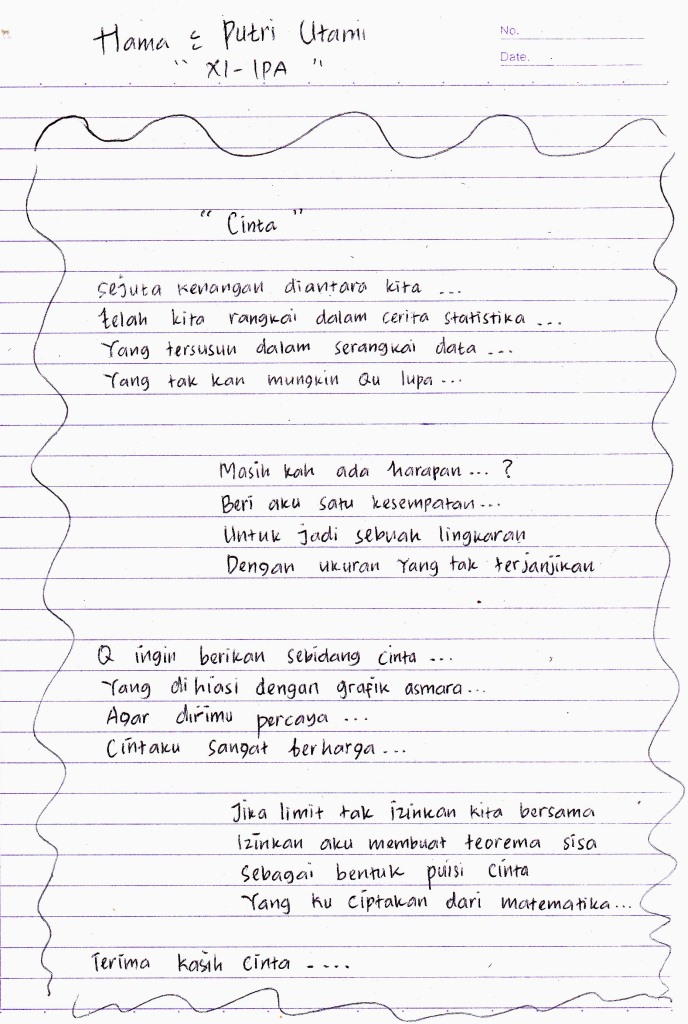 Hama : Putri Utami
No.
" XI-IPA "
Date.
" Cinta "
Sejuta kenangan diantara kita ...
telah kita rangkai dalam cerita statistika ...
Yang tersusun dalam serangkai data ...
Yang tak kan mungkin Qu lupa ...
Masih kah ada harapan ... ?
Beri aku satu kesempatan ...
Untuk jadi sebuah lingkaran
Dengan ukuran Yang tak terjanjikan
Q ingin berikan sebidang cinta ...
Yang di hiasi dengan grafik asmara ...
Agar dirimu percaya ...
Cintaku sangat berharga ...
Jika limit tak izinkan kita bersama
Izinkan aku membuat teorema sisa
Sebagai bentuk puisi cinta
Yang ku ciptakan dari matematika ...
Terima kasih cinta ....